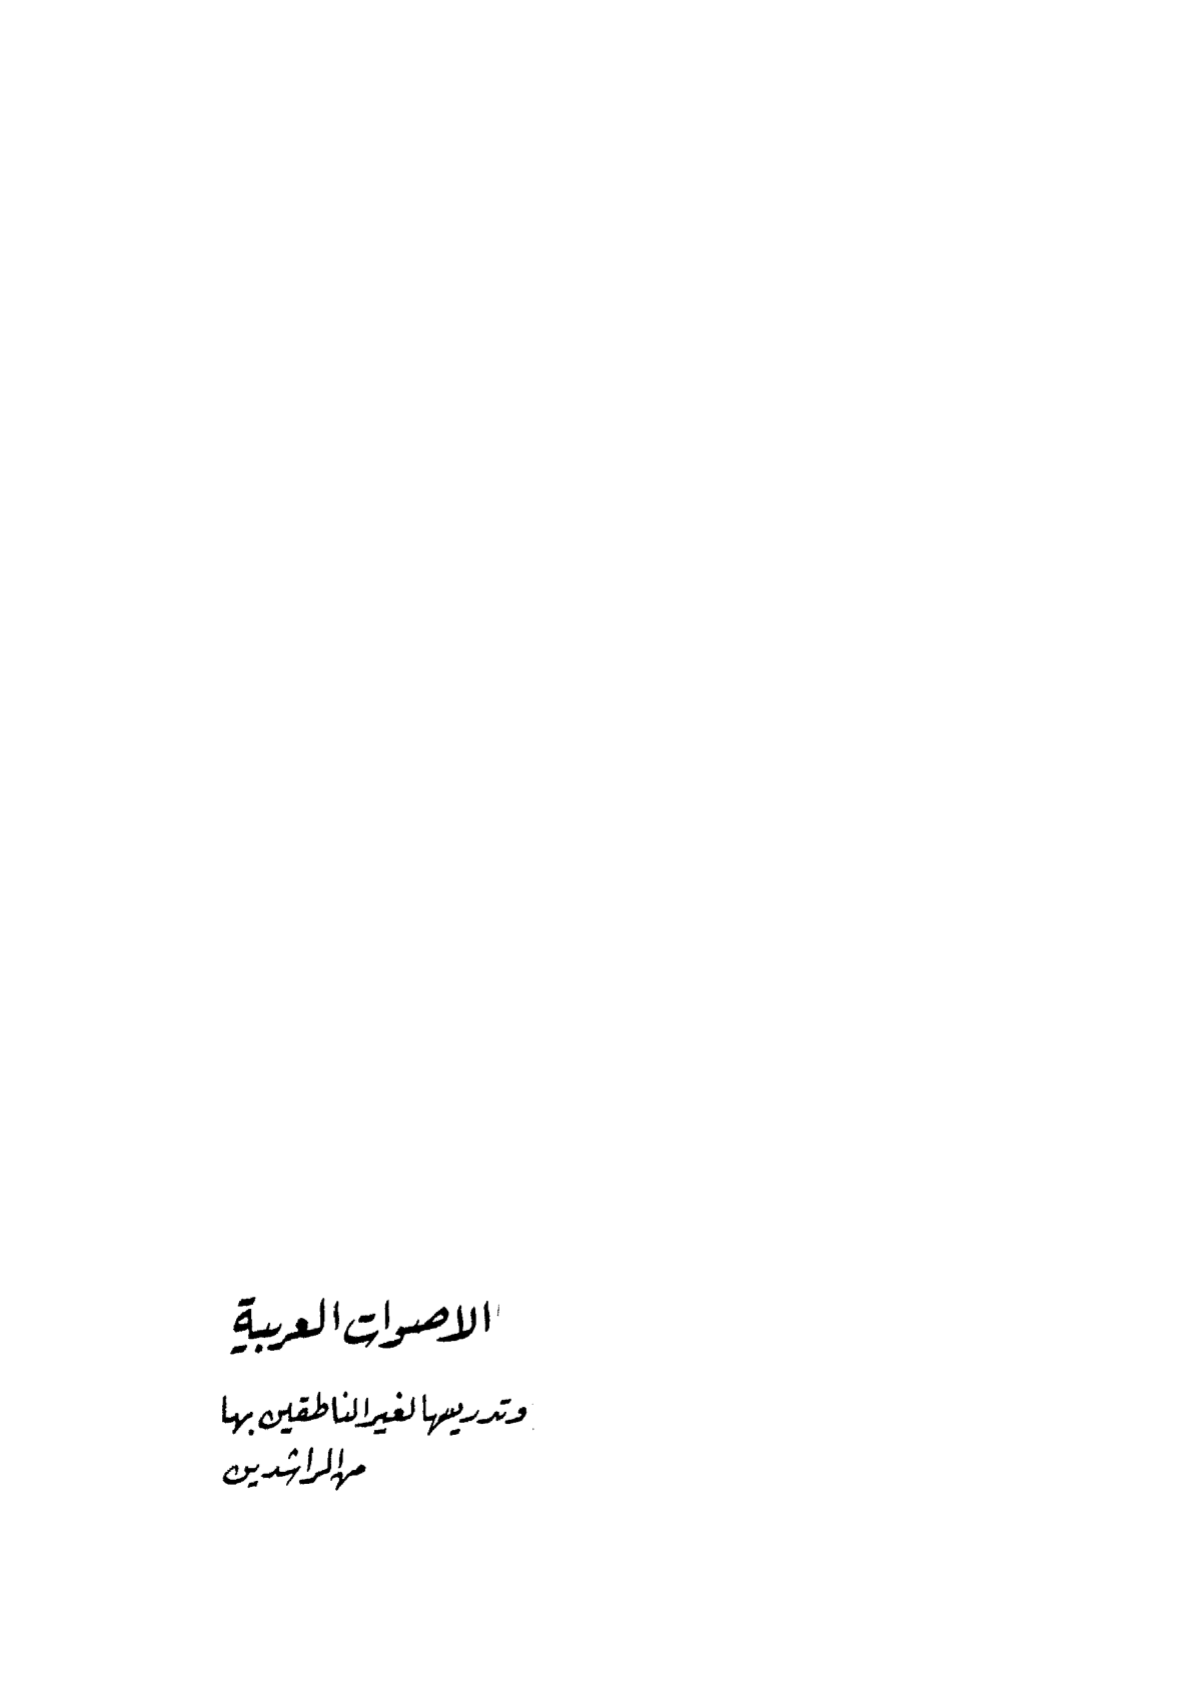 الاصوات العربية
وتدريسها لغير الناطقين بها
من الراشدين